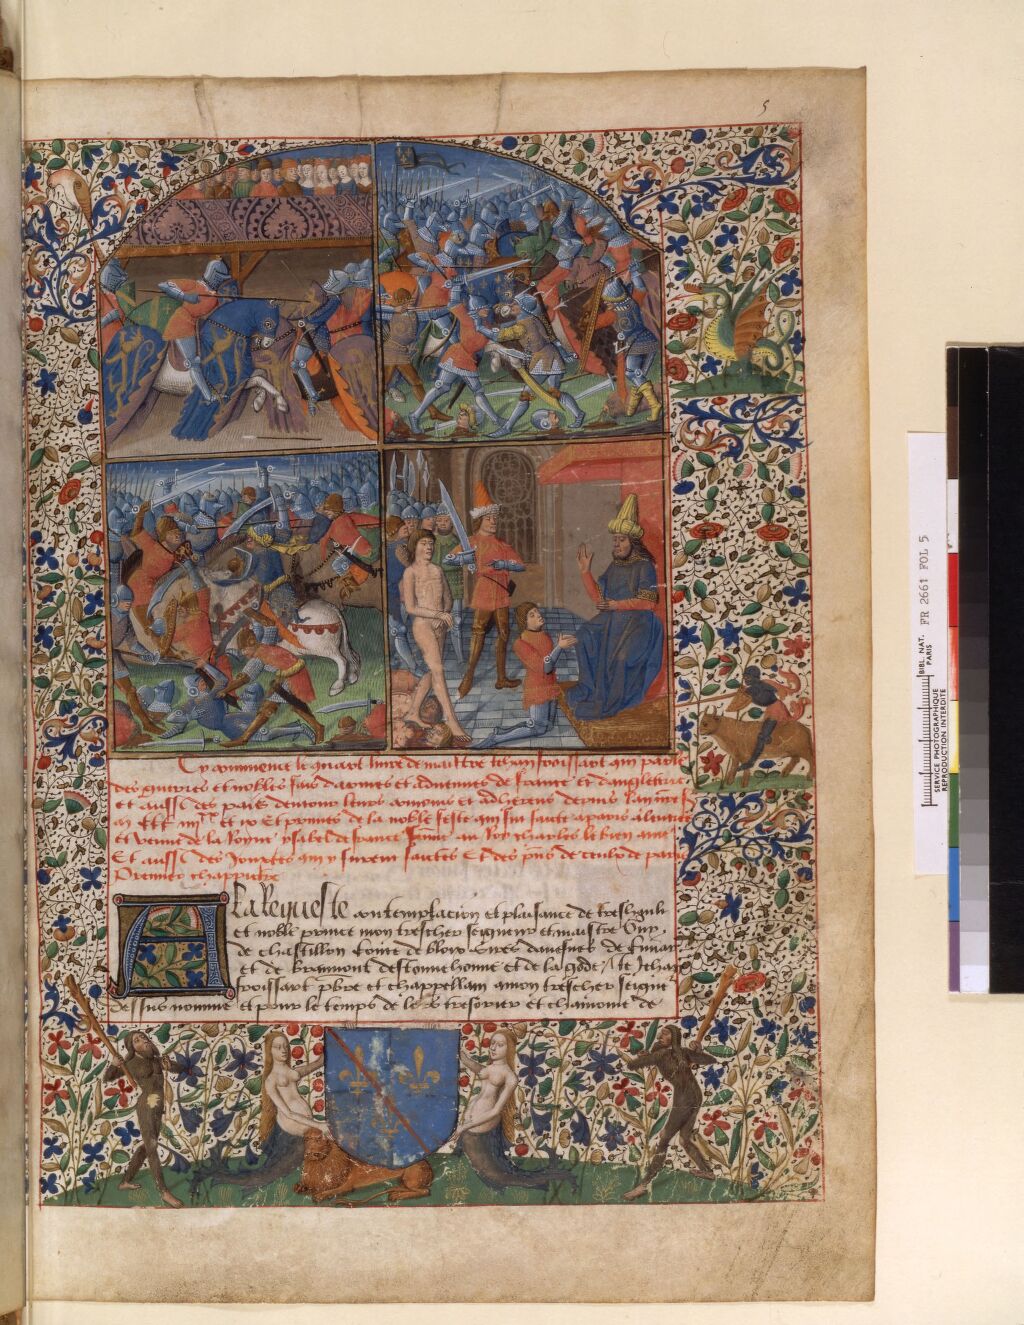 5
Cy commence le quart livre de maistre Jehan froissart qui parle
des guerres et nobles fais darmes et advenues de france et dangleterre
et aussi des pais dentour leurs
et Et premier de la noble feste qui fut faicte a paris a lentree
et venue de la Royne ysabel de france femme au Roy charles le bien ame
Et aussi des Joustes qui y furent faictes Et des de ceulx de paris
Premier chappitre
A la Requeste contemplacion et plaisance de treshault
et noble prince mon treschier seigneur et maistre Guy
de chastillon conte de blois sires davesnes de
et de et de la gode / Je Jehan
froissart pbre et chappellain a mon treschier seigneur
dessus nomme et pour le temps de lors tresorier et chanoine de
BIBL. NAT. PARIS
FR 2661 FOL 5
SERVICE PHOTOGRAPHIQUE
REPRODUCTION INTERDITE